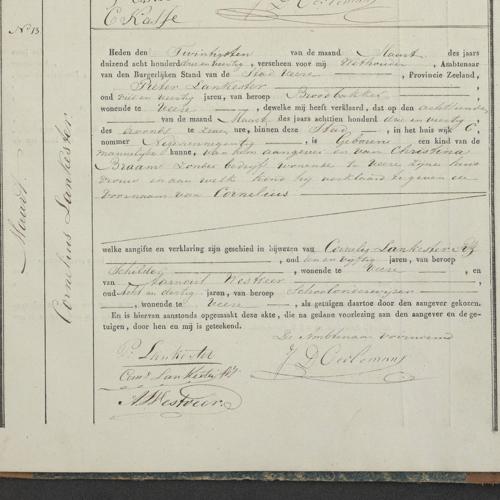 C Kalfe
J D Oestmans
N° 13.
Maart
Cornelius Lankester
Heden den Twintigsten van de maand Maart des jaars
duizend acht honderd drie en veertig, verscheen voor mij Wethouder, Ambtenaar
van den Burgerlijken Stand van de Stad Veere, Provincie Zeeland,
Pieter Lankester
oud drie en veertig jaren, van beroep Broodbakker
wonende te Veere, dewelke mij heeft verklaard, dat op den achttienden
van de maand Maart des jaars achttien honderd drie en veertig,
des avonds te zeven ure, binnen deze Stad, in het huis wijk C,
nommer Negenennegentig, is Geboren een kind van de
mannelijke kunne, van hem aangever en van Christina
Braam zonder bedrijf wonende te Veere zijne huis
vrouw en aan welk kind hij verklaard te geven den
voornaam van Cornelius
welke aangifte en verklaring zijn geschied in bijwezen van Cornelis Lankester
, oud een en vijftig jaren, van beroep
Schilder, wonende te Veere, en
van Aarnout Westveer
oud Acht en dertig jaren, van beroep Schoolonderwijzer
, wonende te Veere, als getuigen daartoe door den aangever gekozen.
En is hiervan aanstonds opgemaakt deze akte, die na gedane voorlezing aan den aangever en de ge-
tuigen, door hen en mij is geteekend.
De Ambtenaar voornoemd
P. Lankester
Corns Lankester
A. Westveer.